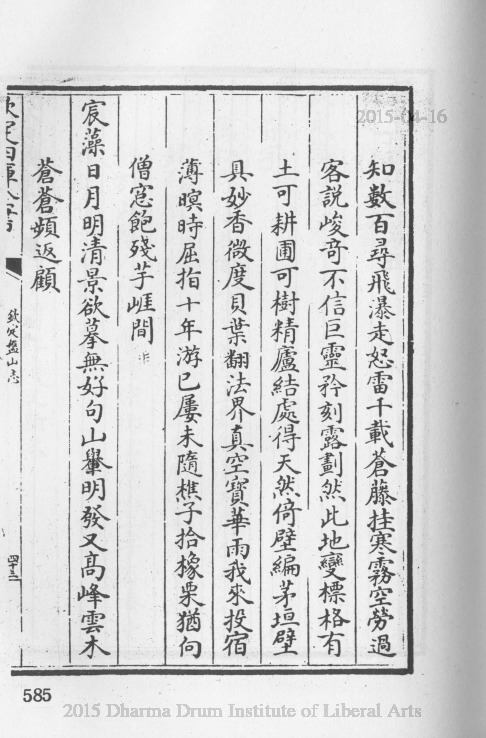 知數百尋飛瀑走怒雷千載蒼藤挂寒霧空勞過
客説峻竒不信巨靈矜刻露劃然此地變標格有
土可耕圃可樹精廬結處得天然倚壁編茅垣壁
具妙香微度貝葉翻法界真空寶華雨我來投宿
薄暝時屈指十年游已屢未隨樵子拾橡栗猶向
僧窓飽殘芋崕間
宸藻日月明清景欲摹無好句山轝明發又髙峰雲木
蒼蒼頻返顧
欽定盤山志
585
2015-04-16
2015 Dharma Drum Institute of Liberal Arts